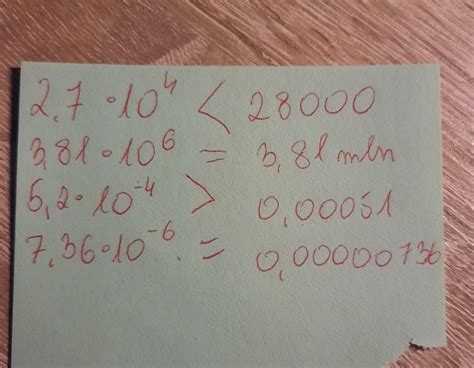 2,7 · 10⁴ < 28000
3,81 · 10⁶ = 3,81 mln
5,2 · 10⁻⁴ > 0,00051
7,36 · 10⁻⁶ = 0,00000736